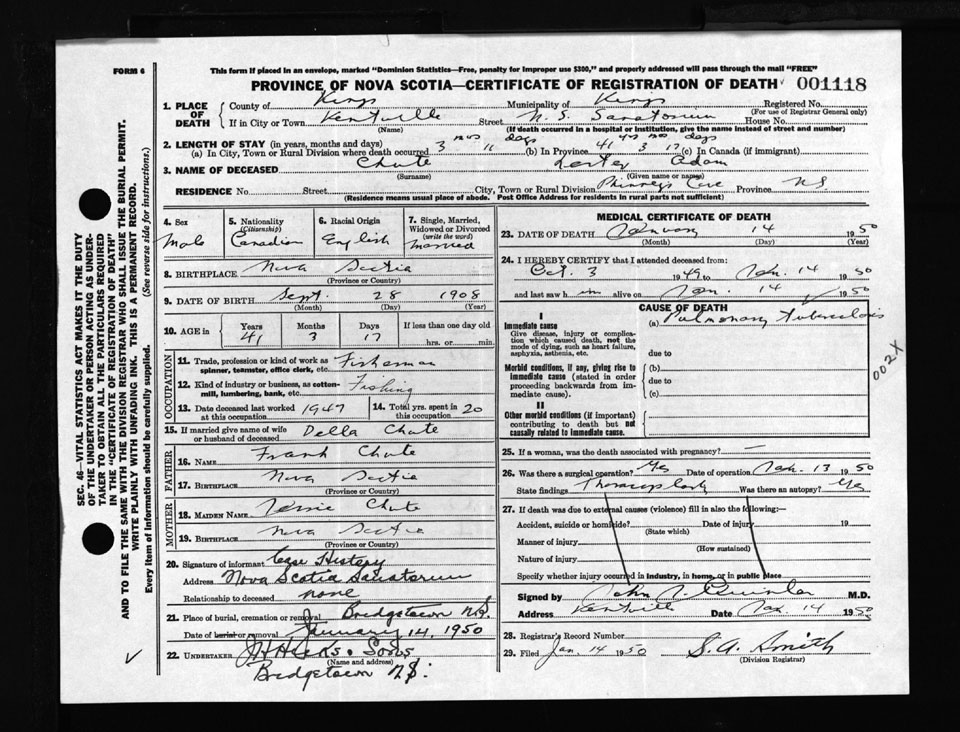 FORM 6
This form if placed in an envelope, marked "Dominion Statistics—Free, penalty for improper use $300," and properly addressed will pass through the mail "FREE"
PROVINCE OF NOVA SCOTIA—CERTIFICATE OF REGISTRATION OF DEATH 001118
1. PLACE OF DEATH
County of Kings Municipality of Kings Registered No.
(For use of Registrar General only)
If in City or Town Kentville Street N. S. Sanatorium House No.
(Name) (If death occurred in a hospital or institution, give the name instead of street and number)
2. LENGTH OF STAY (in years, months and days)
(a) In City, Town or Rural Division where death occurred 3 mos 11 days (b) In Province 41 yrs 3 mos 17 days (c) In Canada (if immigrant)
3. NAME OF DECEASED Chute Adam
(Surname) (Given name or names)
RESIDENCE No. Street City, Town or Rural Division Phinney's Cove Province NS
(Residence means usual place of abode. Post Office Address for residents in rural parts not sufficient)
4. Sex Male
5. Nationality (Citizenship) Canadian
6. Racial Origin English
7. Single, Married, Widowed or Divorced (write the word) Married
8. BIRTHPLACE Nova Scotia
(Province or Country)
9. DATE OF BIRTH Sept. 28 1908
(Month) (Day) (Year)
10. AGE in Years 41 Months 3 Days 17 If less than one day old hrs. or min.
OCCUPATION
11. Trade, profession or kind of work as spinner, teamster, office clerk, etc. Fisherman
12. Kind of industry or business, as cotton-mill, lumbering, bank, etc. Fishing
13. Date deceased last worked at this occupation 1947
14. Total yrs. spent in this occupation 20
15. If married give name of wife or husband of deceased Della Chute
FATHER
16. NAME Frank Chute
17. BIRTHPLACE Nova Scotia
(Province or Country)
MOTHER
18. MAIDEN NAME Chute
19. BIRTHPLACE Nova Scotia
(Province or Country)
20. Signature of informant Case History
Address Nova Scotia Sanatorium
Relationship to deceased none
21. Place of burial, cremation or removal Bridgetown N.S.
Date of burial or removal January 14, 1950
22. UNDERTAKER
(Name and address)
Bridgetown N.S.
MEDICAL CERTIFICATE OF DEATH
23. DATE OF DEATH January 14 1950
(Month) (Day) (Year)
24. I HEREBY CERTIFY that I attended deceased from:
Oct. 3 1949 to Jan. 14 1950
and last saw him alive on Jan. 14 1950
CAUSE OF DEATH
I
Immediate cause
Give disease, injury or complication which caused death, not the mode of dying, such as heart failure, asphyxia, asthenia, etc.
(a) Pulmonary Tuberculosis
due to
Morbid conditions, if any, giving rise to immediate cause (stated in order proceeding backwards from immediate cause).
(b)
due to
(c)
II
Other morbid conditions (if important) contributing to death but not causally related to immediate cause.
002X
25. If a woman, was the death associated with pregnancy? —
26. Was there a surgical operation? Yes Date of operation Jan. 13 1950
State findings Thoracoplasty Was there an autopsy? Yes
27. If death was due to external causes (violence) fill in also the following:—
Accident, suicide or homicide? Date of injury 19
(State which)
Manner of injury
(How sustained)
Nature of injury
Specify whether injury occurred in industry, in home, or in public place
Signed by John M.D.
Address Kentville Date Jan. 14 1950
28. Registrar's Record Number
29. Filed Jan. 14 1950 S. A. Smith
(Division Registrar)
SEC. 46—VITAL STATISTICS ACT MAKES IT THE DUTY
OF THE UNDERTAKER OR PERSON ACTING AS UNDER-
TAKER TO OBTAIN ALL THE PARTICULARS REQUIRED
IN THE "CERTIFICATE OF REGISTRATION OF DEATH"
AND TO FILE THE SAME WITH THE DIVISION REGISTRAR WHO SHALL ISSUE THE BURIAL PERMIT.
WRITE PLAINLY WITH UNFADING INK. THIS IS A PERMANENT RECORD.
Every item of information should be carefully supplied. (See reverse side for instructions.)